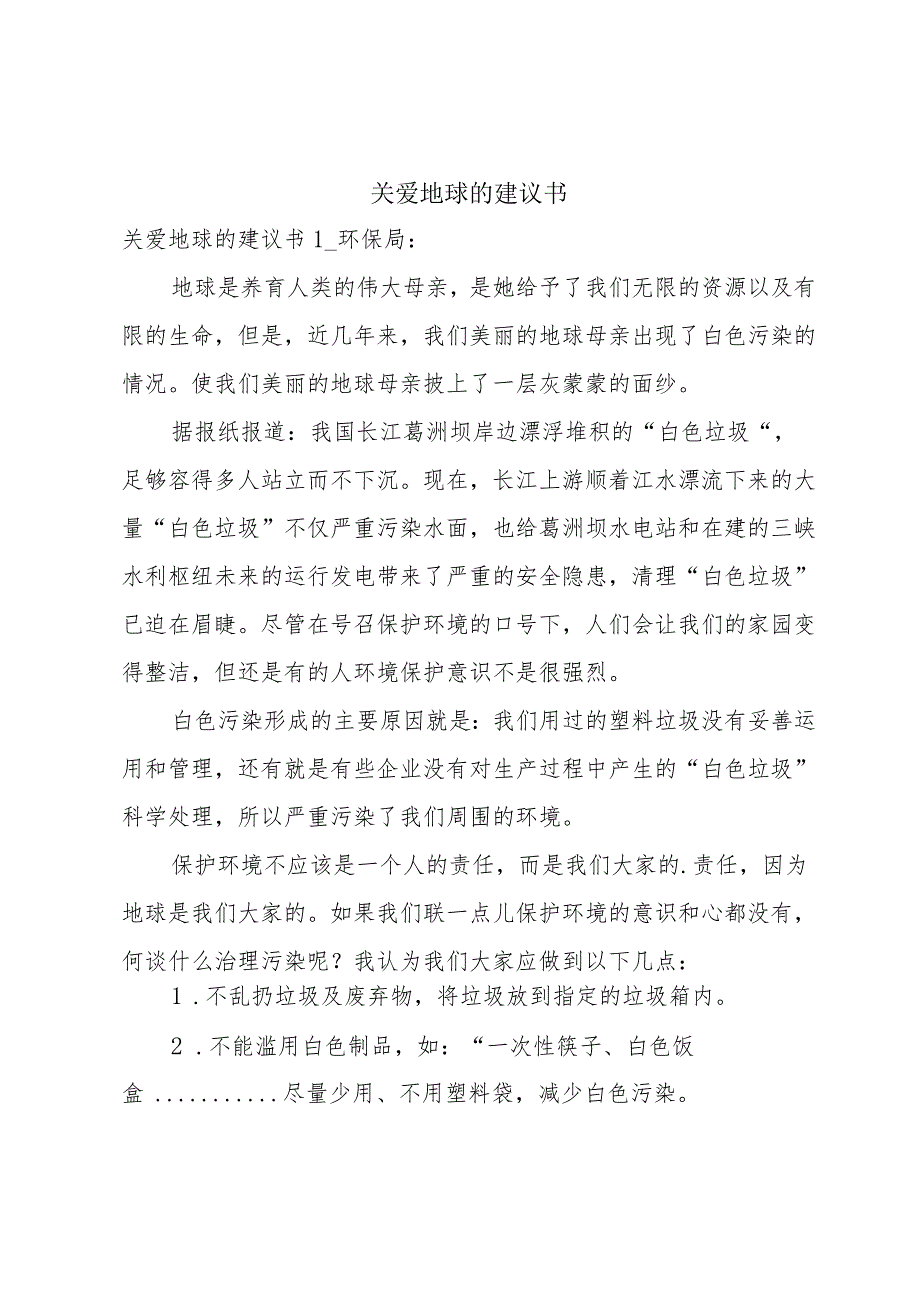 关爱地球的建议书
关爱地球的建议书1_环保局：
地球是养育人类的伟大母亲，是她给予了我们无限的资源以及有
限的生命，但是，近几年来，我们美丽的地球母亲出现了白色污染的
情况。使我们美丽的地球母亲披上了一层灰蒙蒙的面纱。
据报纸报道：我国长江葛洲坝岸边漂浮堆积的“白色垃圾“，
足够容得多人站立而不下沉。现在，长江上游顺着江水漂流下来的大
量“白色垃圾”不仅严重污染水面，也给葛洲坝水电站和在建的三峡
水利枢纽未来的运行发电带来了严重的安全隐患，清理“白色垃圾”
已迫在眉睫。尽管在号召保护环境的口号下，人们会让我们的家园变
得整洁，但还是有的人环境保护意识不是很强烈。
白色污染形成的主要原因就是：我们用过的塑料垃圾没有妥善运
用和管理，还有就是有些企业没有对生产过程中产生的“白色垃圾”
科学处理，所以严重污染了我们周围的环境。
保护环境不应该是一个人的责任，而是我们大家的.责任，因为
地球是我们大家的。如果我们联一点儿保护环境的意识和心都没有，
何谈什么治理污染呢？我认为我们大家应做到以下几点：
1 .不乱扔垃圾及废弃物，将垃圾放到指定的垃圾箱内。
2 .不能滥用白色制品，如：“一次性筷子、白色饭
盒 ...........尽量少用、不用塑料袋，减少白色污染。